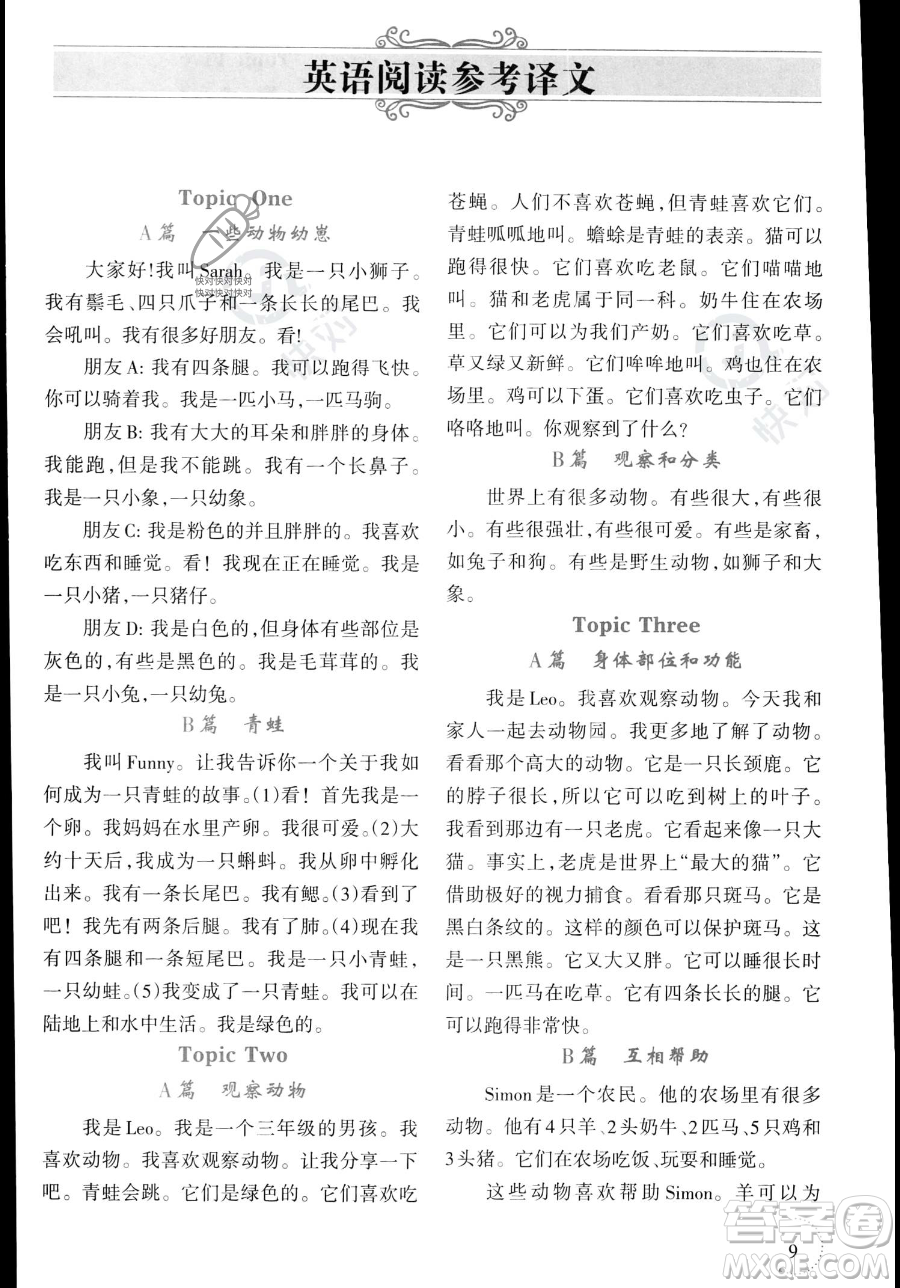 英语阅读参考译文
Topic One
A篇 一些动物幼崽
大家好!我叫Sarah。我是一只小狮子。
我有鬃毛、四只爪子和一条长长的尾巴。我
会吼叫。我有很多好朋友。看!
朋友A: 我有四条腿。我可以跑得飞快。
你可以骑着我。我是一匹小马,一匹马驹。
朋友B: 我有大大的耳朵和胖胖的身体。
我能跑,但不能跳。我有一个长鼻子。
我是一只小象,一只幼象。
朋友C: 我是粉色的并且胖胖的。我喜欢
吃东西和睡觉。看! 我现在正在睡觉。我是
一只小猪,一只猪仔。
朋友D: 我是白色的,但身体有些部位是
灰色的,有些是黑色的。我是毛茸茸的。我
是一只小兔,一只幼兔。
B篇 青蛙
我叫Funny。让我告诉你一个关于我如
何成为一只青蛙的故事。(1)看! 首先我是
一个卵。我妈妈在水里产卵。我很可爱。(2)大
约十天后,我成为一只蝌蚪。我从卵中孵化
出来。我有一条长尾巴。我有鳃。(3)看到了
吧! 我先有两条后腿。我有了肺。(4)现在我
有四条腿和一条短尾巴。我是一只小青蛙,
一只幼蛙。(5)我变成了一只青蛙。我可以在
陆地上和水中生活。我是绿色的。
Topic Two
A篇 观察动物
我是Leo。我是一个三年级的男孩。我
喜欢动物。我喜欢观察动物。让我分享一下
吧。青蛙会跳。它们是绿色的。它们喜欢吃
苍蝇。人们不喜欢苍蝇,但青蛙喜欢它们。
青蛙呱呱地叫。蟾蜍是青蛙的表亲。猫可以
跑得很快。它们喜欢吃老鼠。它们喵喵地
叫。猫和老虎属于同一科。奶牛住在农场
里。它们可以为我们产奶。它们喜欢吃草。
草又绿又新鲜。它们哞哞地叫。鸡也住在农
场里。它们可以下蛋。它们喜欢吃虫子。它们
咯咯地叫。你观察到了什么?
B篇 观察和分类
世界上有很多动物。有些很大,有些很
小。有些很强壮,有些很可爱。有些是家畜,
如兔子和狗。有些是野生动物,如狮子和大
象。
Topic Three
A篇 身体部位和功能
我是Leo。我喜欢观察动物。今天我和
家人一起去动物园。我更多地了解了动物。
看看那个高大的动物。它是一只长颈鹿。它
的脖子很长,所以它可以吃到树上的叶子。
我看到那边有一只老虎。它看起来像一只大
猫。事实上,老虎是世界上“最大的猫”。它
借助极好的视力捕食。看看那只斑马。它是
黑白条纹的。这样的颜色可以保护斑马。这
是一只黑熊。它又大又胖。它冬天睡很长时
间。一匹马在吃草。它有四条长长的腿。它
可以跑得非常快。
B篇 互相帮助
Simon是一个农民。他的农场里有很多
动物。他有4只羊、2头奶牛、2匹马、5只鸡和
3头猪。它们在农场吃饭、玩耍和睡觉。
这些动物喜欢帮助Simon。羊可以为
9
快对快对快对
快对快对快对
快对
快对
答案卷
MXQE.COM